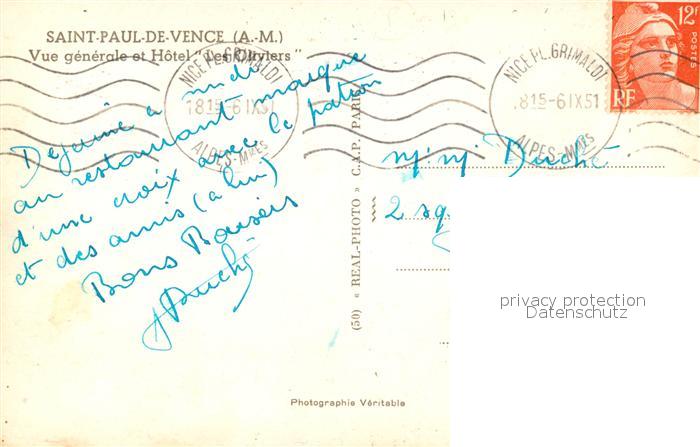 SAINT-PAUL-DE-VENCE (A.-M.)
Vue générale et Hôtel "Les Oliviers"
NICE PL. GRIMALDI
1815 - 6 IX 51
ALPES-Mmes
NICE PL. GRIMALDI
1815 - 6 IX 51
ALPES-Mmes
12f
POSTES
RF
Dejeuné à midi
au restaurant marqué
d'une croix avec le patron
et des amis (à lui)
Bons Baisers
Duché
(50) « REAL-PHOTO » C.A.P. PARIS
M/M Duché
2 sq
privacy protection
Datenschutz
Photographie Véritable